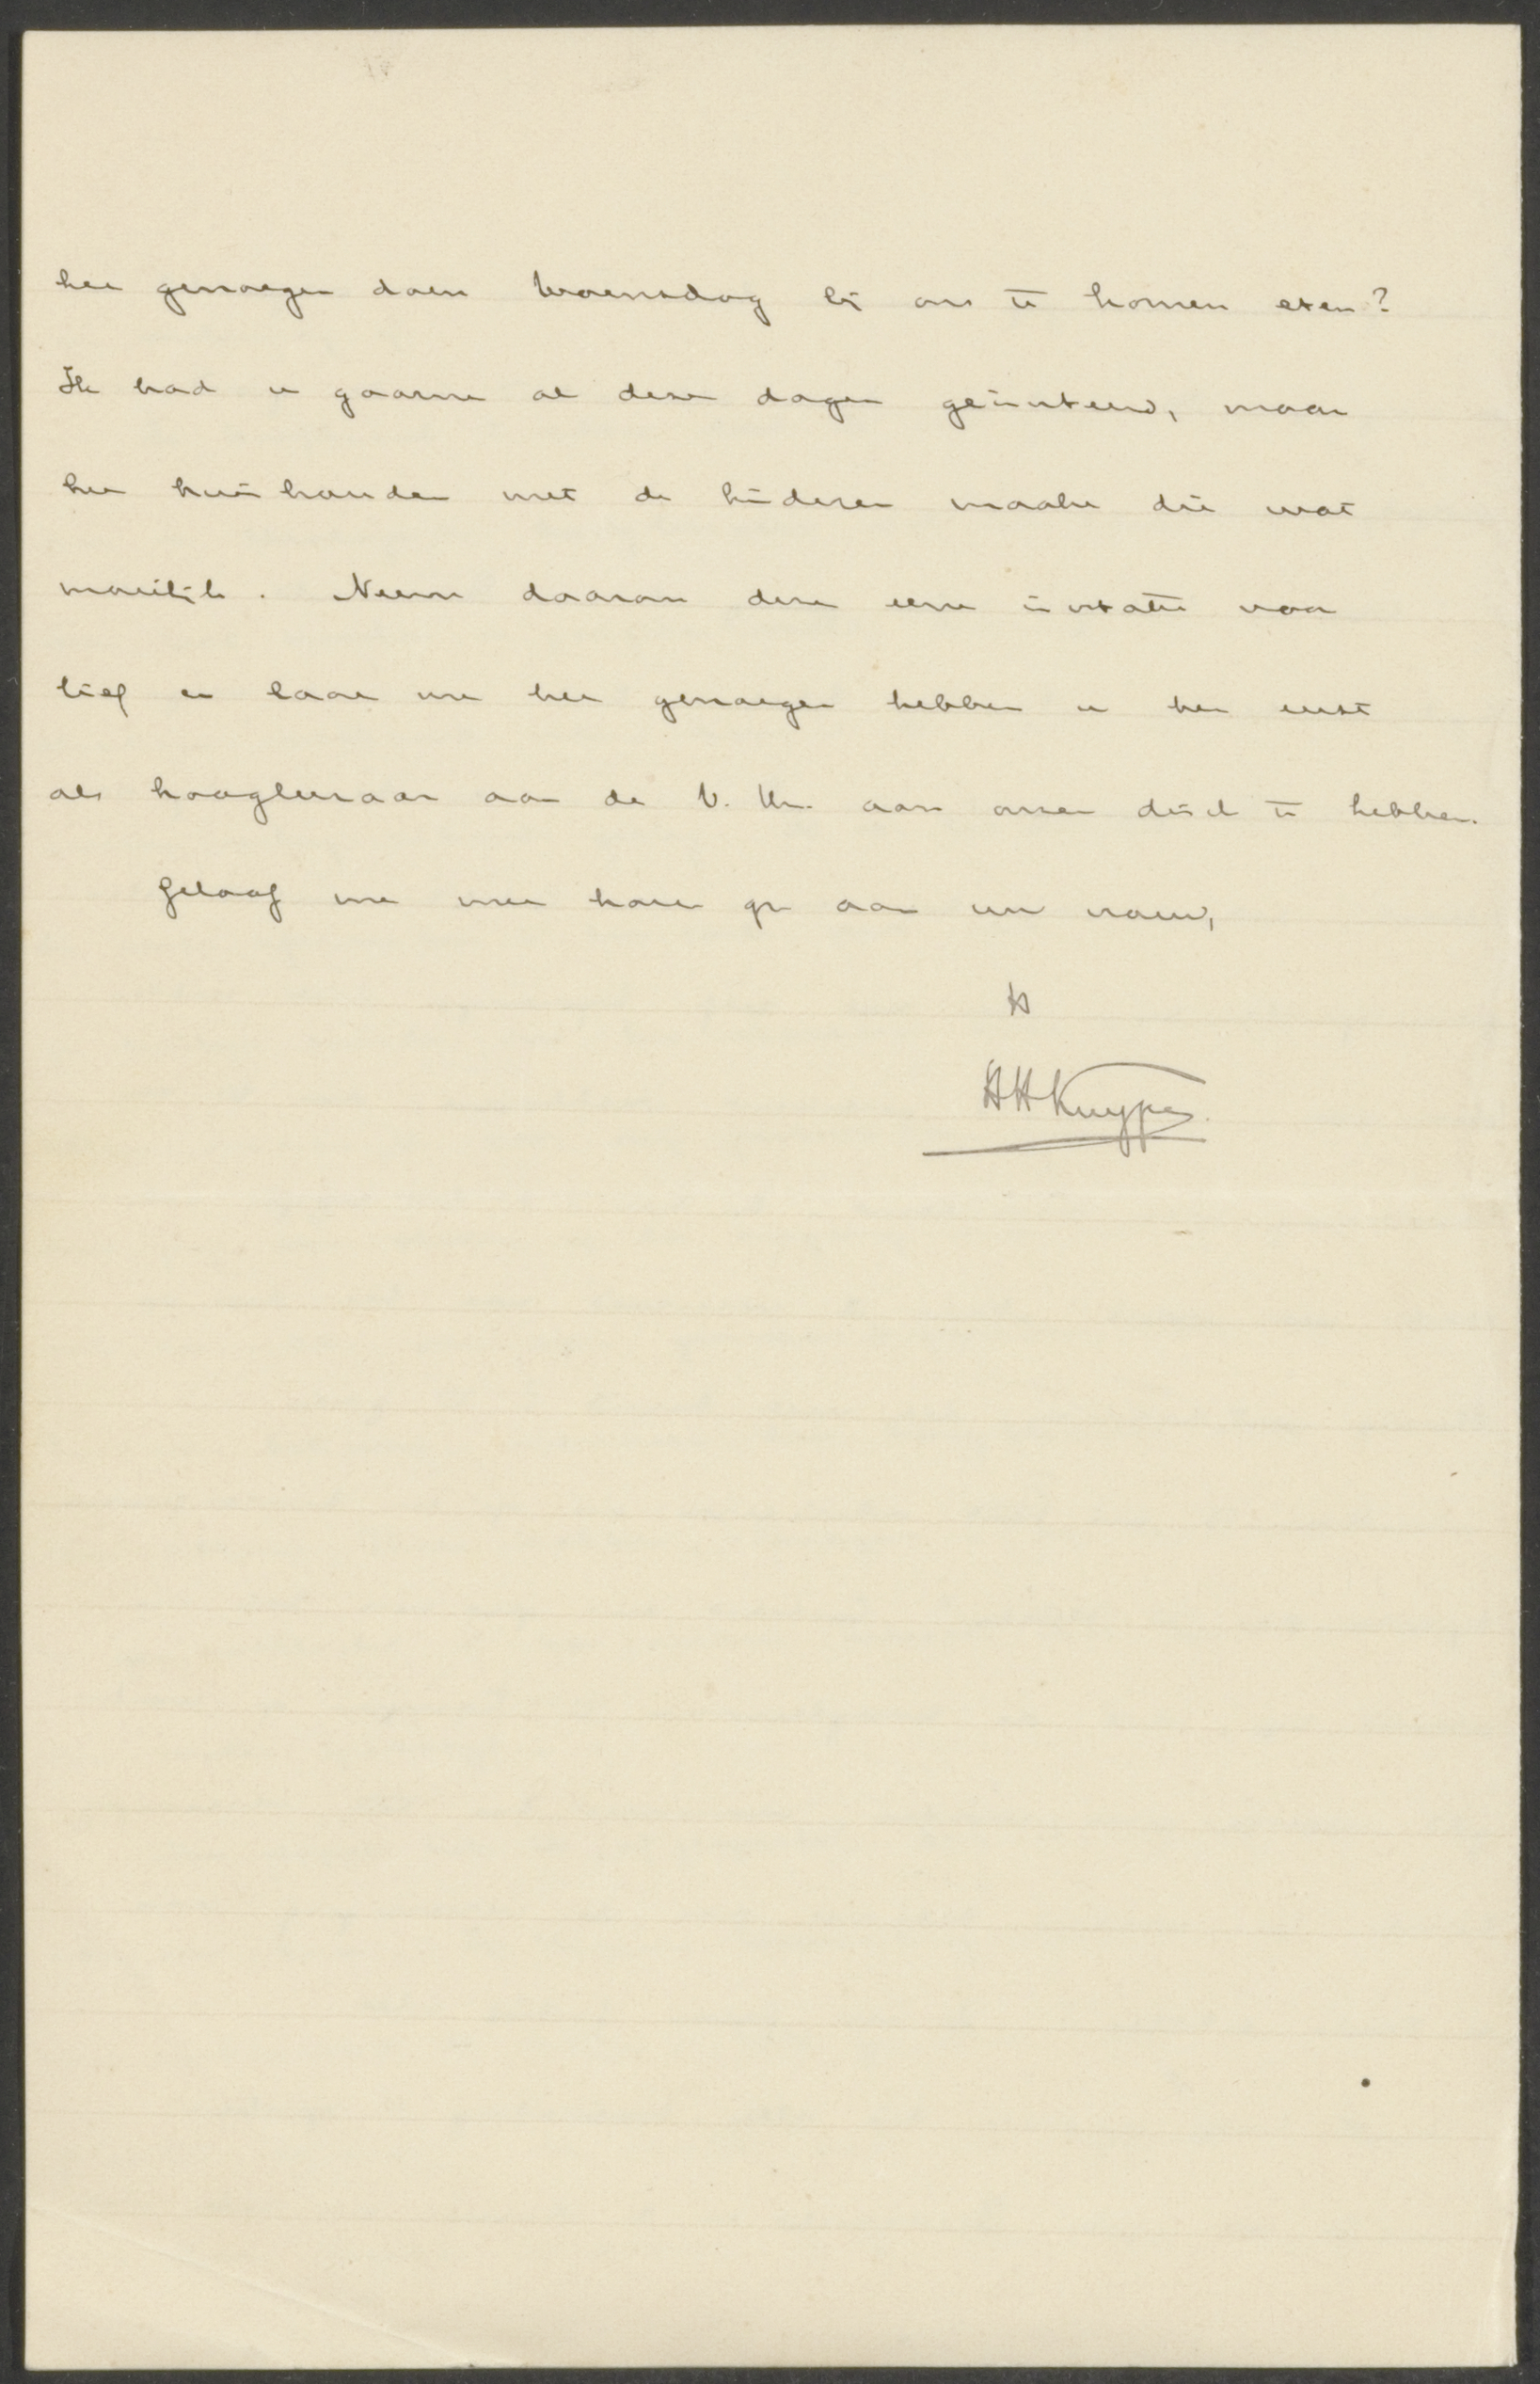 het genoegen doen Woensdag bij ons te komen eten?
Ik had u gaarne al dezer dagen geïnviteerd, maar
het huishouden met de kinderen maakte dit wat
moeilijk. Neem daarom deze eene invitatie voor
lief en laat me het genoegen hebben u het eerst
als hoogleeraar aan de V. Un. aan onzen disch te hebben.
Geloof me met hart. gr. aan uw vrouw,
tt
HHKuyper